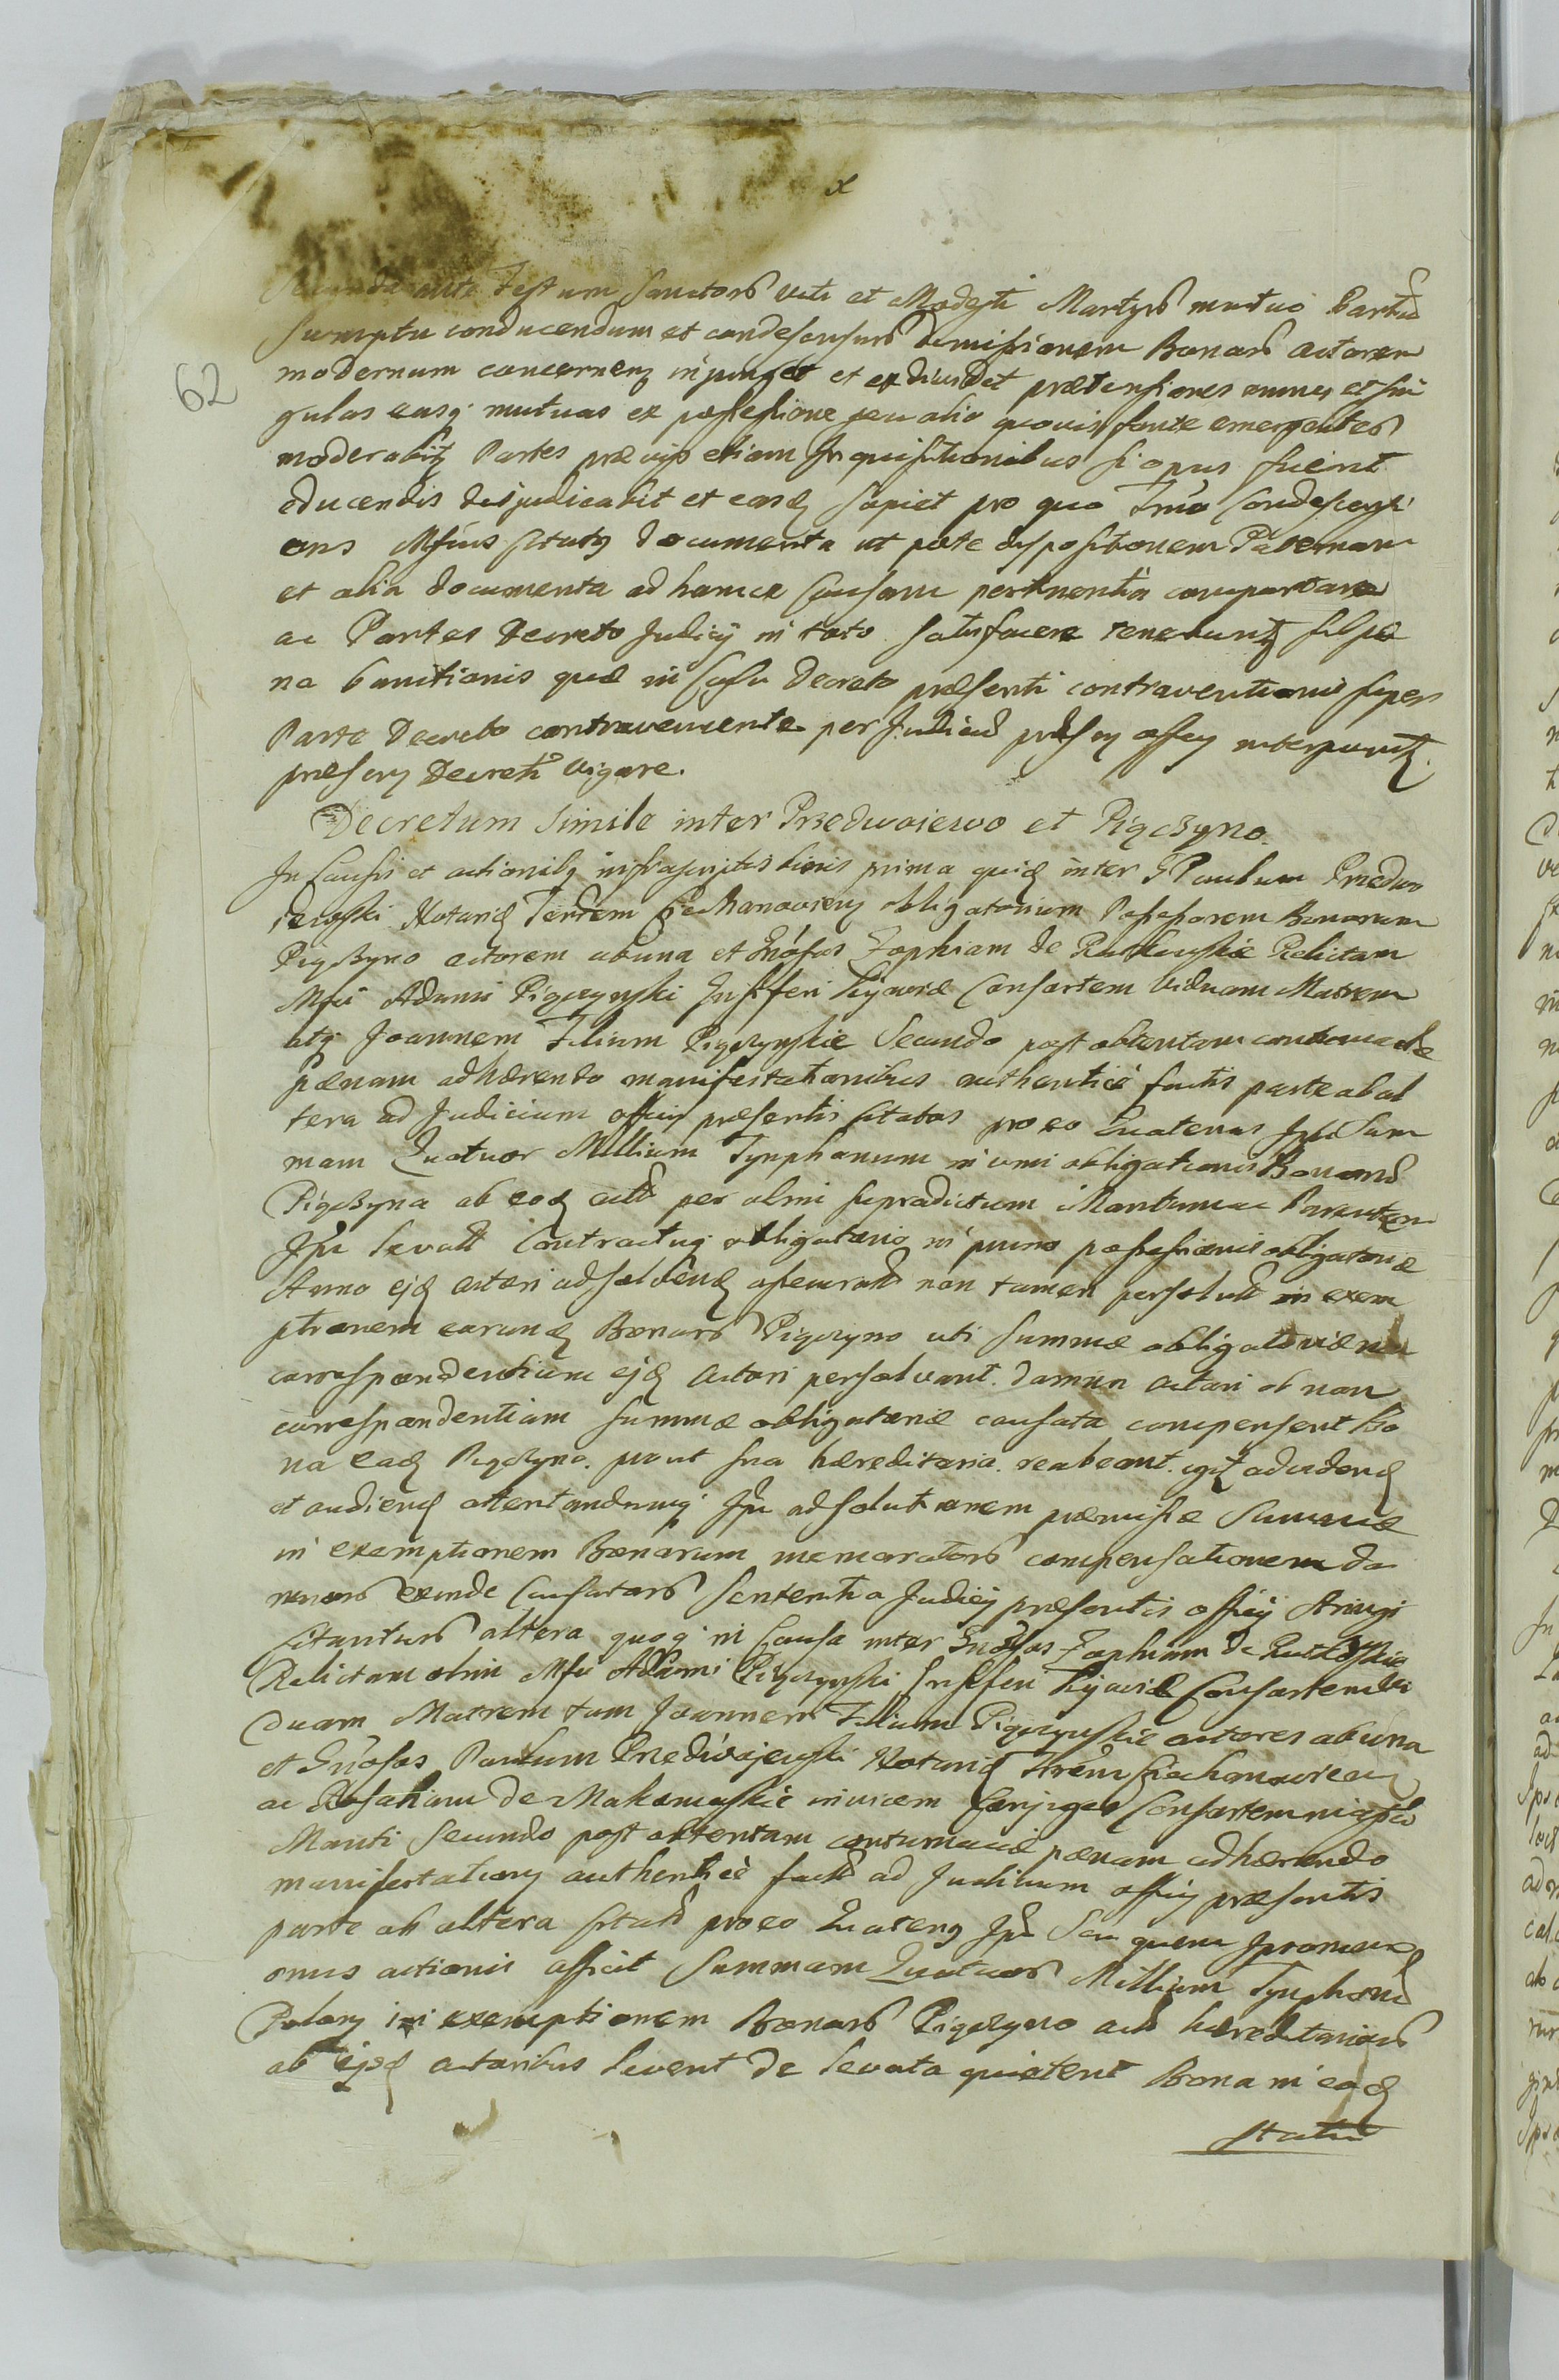 ante Festum Sanctorum Viti et Modesti Martyrum mutuo Partium
sumptu conducendum et condescensurum dimissionem Bonorum actorem
62
modernum concernen injunget et praetensiones omnes et sin
gulas easq mutuas ex possessione seu alio quovis fonte emergentes
moderabit Partes praeviis etiam Inquisitionibus si opus fuerit
educendis dijudicabit et easd sopiet pro quo Tmo Condescensi
onis documenta ut pote dispositionem Paternam
et alia documenta ad hancce Causam pertinentia comportare
ac Partes Decreto Judicii in toto satisfacere tenebunt sub pæ
na banitionis quæ in Casu Decreto præsenti contraventionis super
Parte Decreto contraveniente per Judicium præsen offcii interponitur
præsen Decreti vigore.
Decretum Simile inter Przedwoiewo et Pigczyno.
In Causis et actionibq infrascriptis binis prima quid inter G Paulum Przedwo
iewski Notariq Terrem Ciechanovien obligatorium Possessorem Bonorum
Pigczyno actorem ab una et Gnosos Zophiam de Rutkowskie Relictam
Mfci Adami Pigczynski Kijoviæ Consortem Viduam Matrem
Joannem Filium Pigczynskie Secundo post obtentam contumaciæ
pænam adhærendo manifestationibus authentice factis parte ab al
tera ad Judicium officii præsentis citatos pro eo Quatenus Ipsi Sum
mam Quatuor Millium Tynphonum in vim obligationis Bonorum
Pigczyna ab eod actre per olim supradictum Maritum ac Parentem
Ipsi levatam Contractuq obligatorio in primo possessionis obligatoriæ
Anno ejd actori ad solvend assecuratam non tamen persolutam in exem
ptionem earund Bonorum Pigczyno uti summæ obligatoriæ non
correspondentium ejd actori persolvant. Damna actori ob non
correspondentiam summæ obligatoriæ causata compensent Bo
na ead Pigczyno. prout sua hæreditaria. reabeant. ad videnq
et audiend attentandumq Ipsi ad solutionem præmissæ Summæ
in exemptionem Bonorum memoratorum compensationem da
mnorum exinde Causatorum Sententia Judicii præsentis officii Stringi
Citantur altera quoq in Causa inter Gnosos Zophiam de Rutkowskie
Relictam olim Mfci Adami Pigczynski Kijoviæ Consortem Vi
duam Matrem tum Joannem Filium Pigczynskie actores ab una
et Gnosos Paulum Przedwojewski Notariq Trrem Ciechanovien
ac Rosaliam de Makomaskie invicem Conjuges Consortem in asstia
Mariti Secundo post obtentam contumaciæ pænam adhærendo
manifestationq authentice factis ad Judicium officii præsentis
parte ab altera citatos pro eo Quatenq Ipsi Seu quem Ipsorum
onus actionis afficit Summam Quatuor Millium Tynphonum
Polonq in exemptionem Bonorum Pigczyno actorum hæreditariorum
ab ejsd actoribus levent de levata quietent Bona in eod
statu